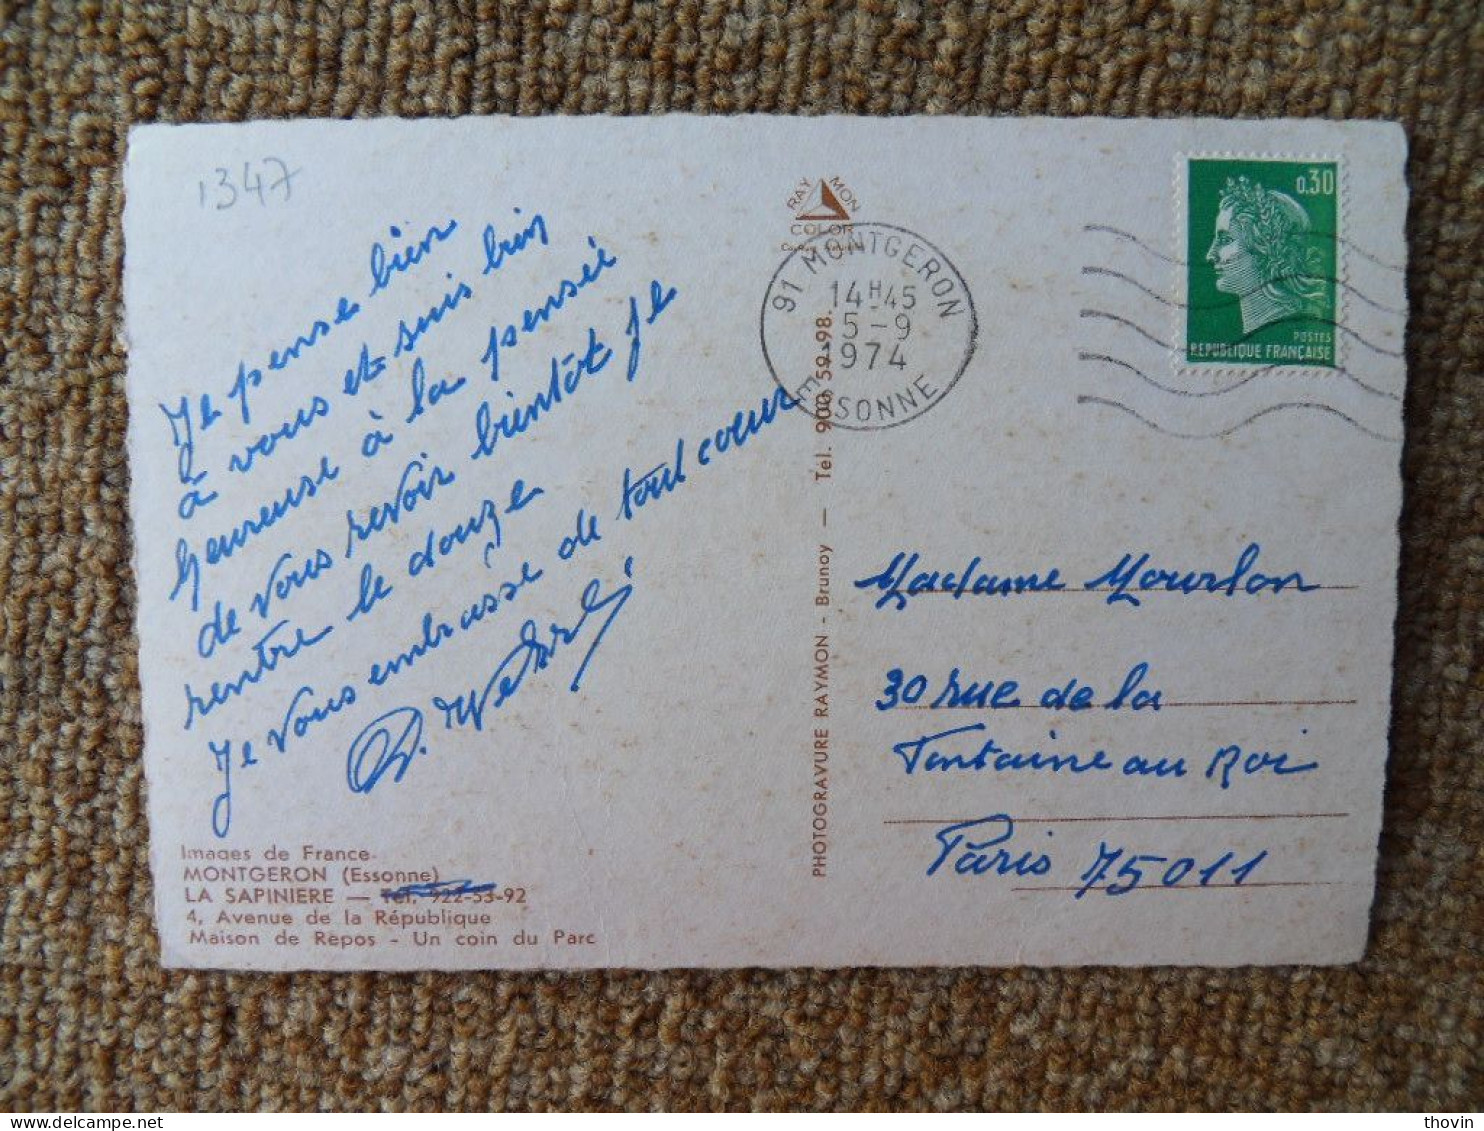 1347
Je pense bien
à vous et suis bien
heureuse à la pensée
de vous revoir bientôt je
rentre le douze
Je vous embrasse de tout coeur
Images de France.
MONTGERON (Essonne)
LA SAPINIERE — Tél. 922-53-92
4, Avenue de la République
Maison de Repos - Un coin du Parc
PHOTOGRAVURE RAYMON - Brunoy — Tél. 900.59-98.
RAY MON
COLOR
91 MONTGERON
14H45
5-9
1974
ESSONNE
0,30
POSTES
REPUBLIQUE FRANÇAISE
Madame Mourlon
30 rue de la
Fontaine au Roi
Paris 75011
thovin